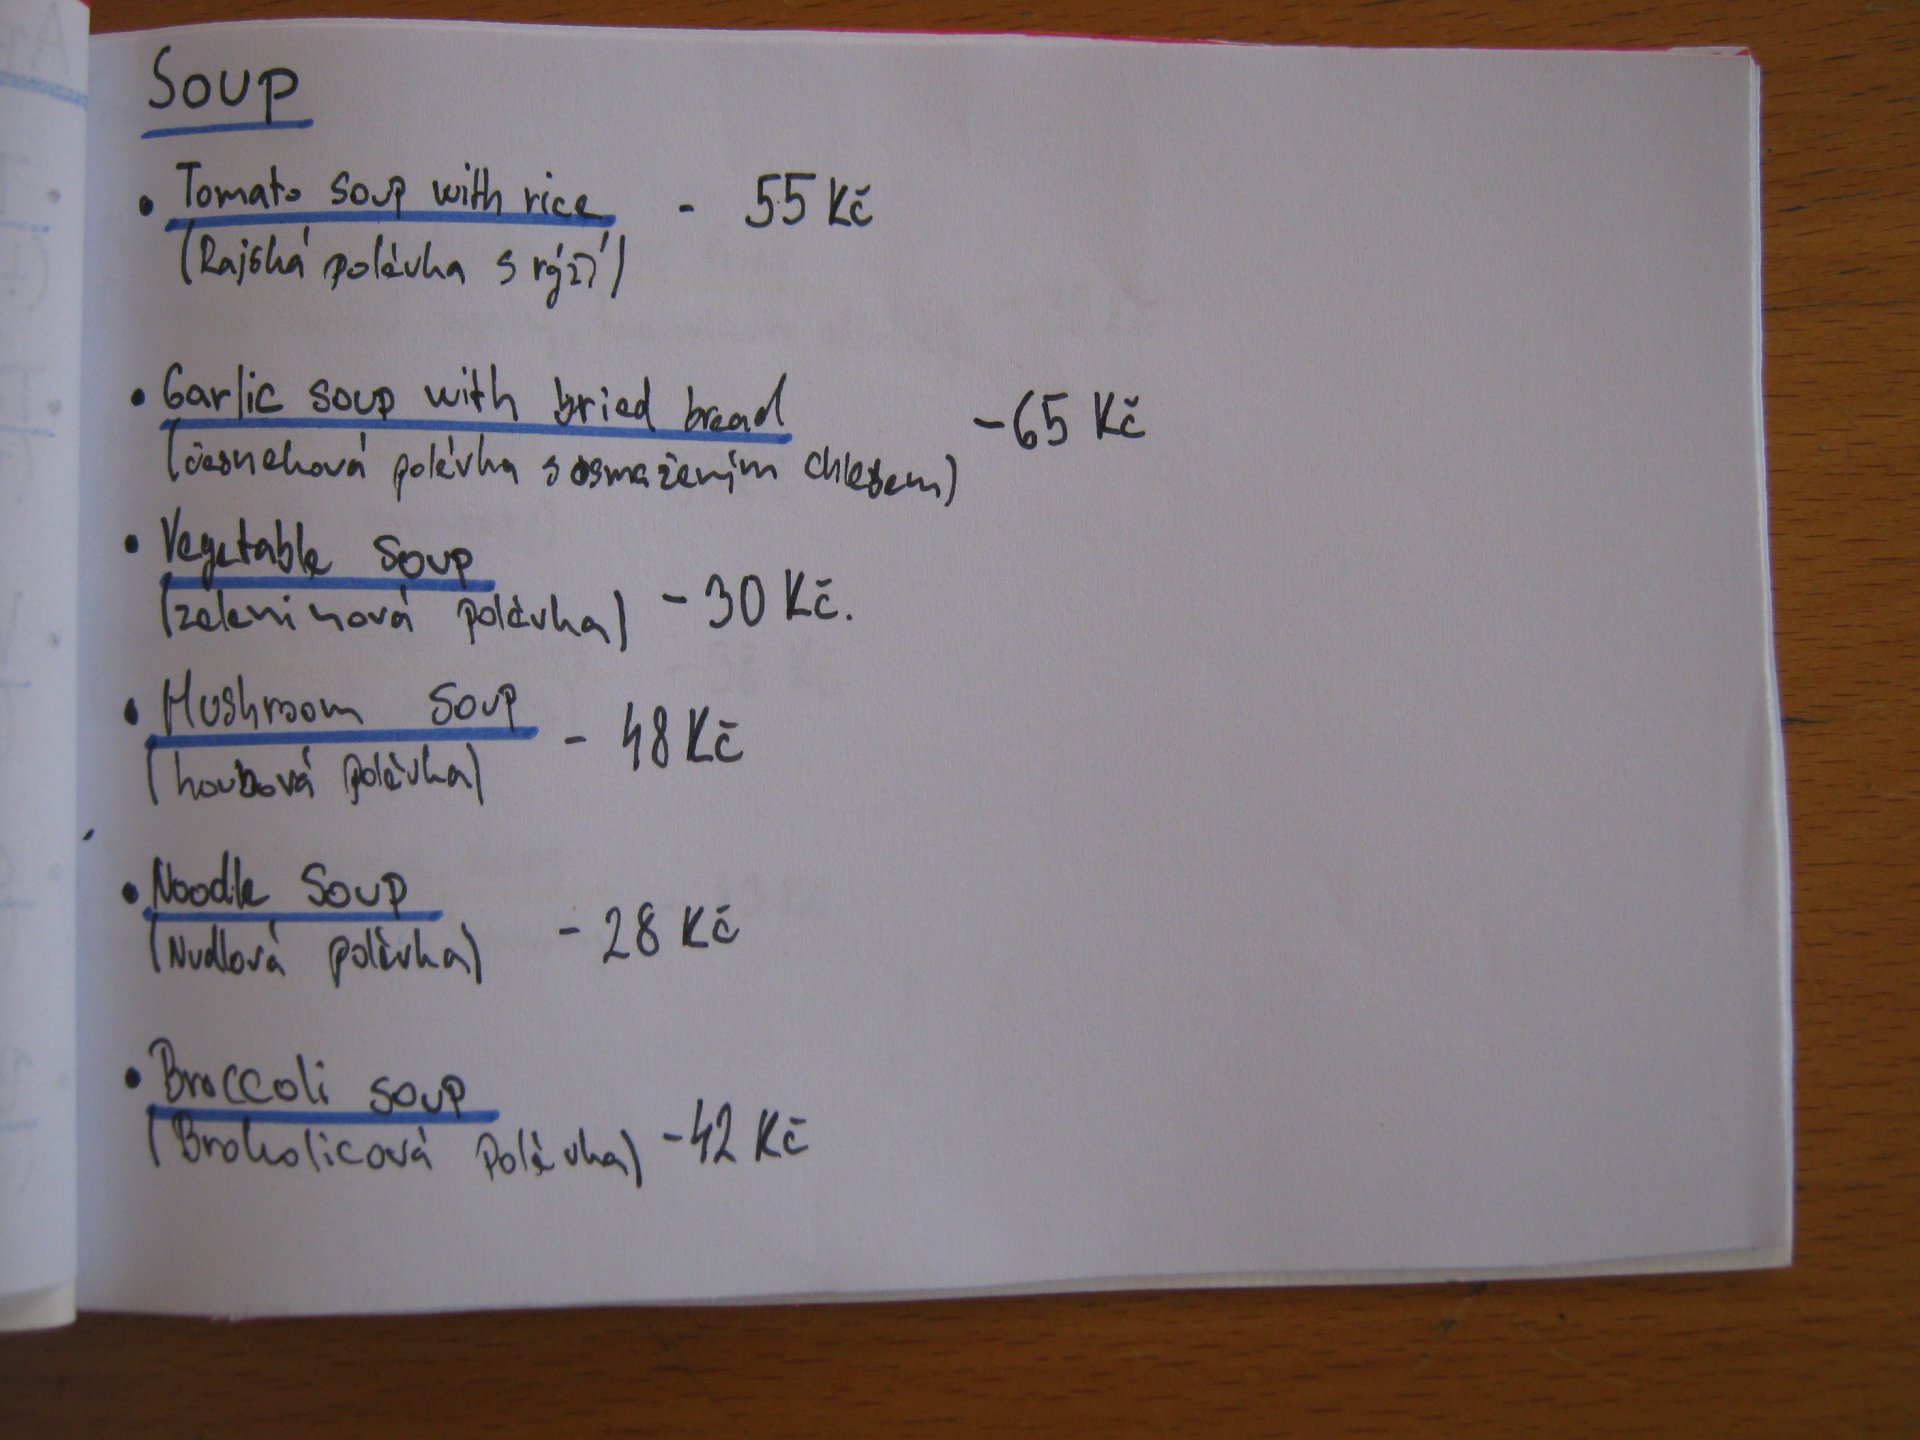 Soup
• Tomato soup with rice - 55 Kč
(Rajská polévka s rýží)
• Garlic soup with bried bread - 65 Kč
(česneková polévka s osmažením chlebem)
• Vegetable soup
(zeleninová polévka) - 30 Kč.
• Mushroom soup - 48 Kč
(houbová polévka)
• Noodle soup
(Nudlová polévka) - 28 Kč
• Broccoli soup
(Brokolicová polévka) - 42 Kč